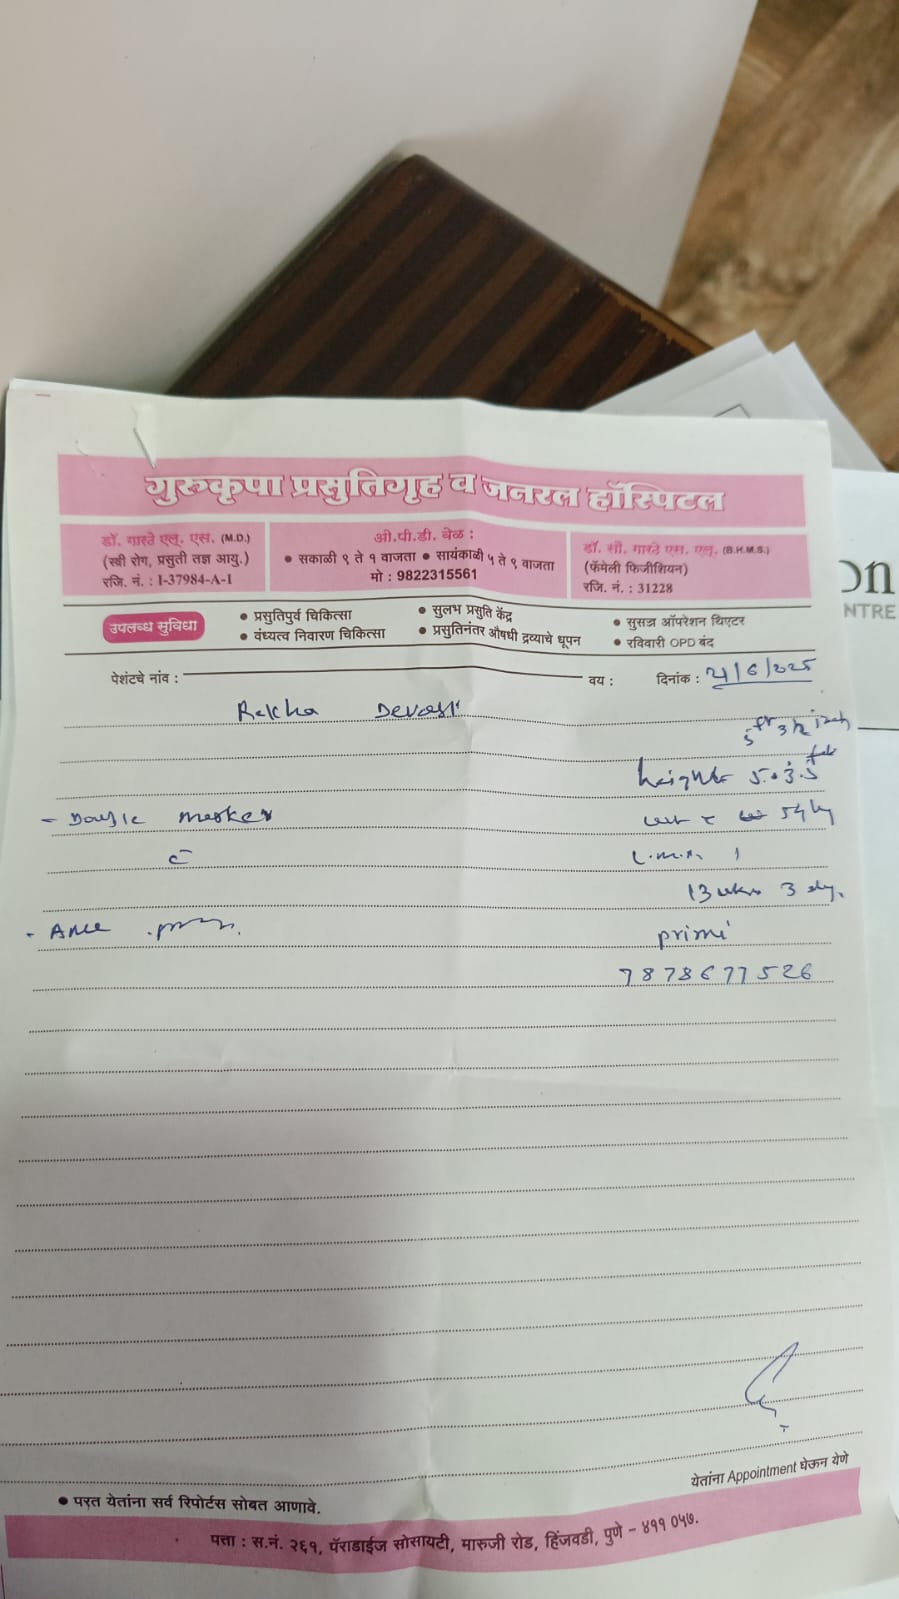 गुरुकृपा प्रसुतिगृह व जनरल हॉस्पिटल
डॉ. गारते एल. एस. (M.D.)
(स्त्री रोग, प्रसुती तज्ञ आयु.)
रजि. नं. : I-37984-A-1
ओ.पी.डी. वेळ :
• सकाळी ९ ते १ वाजता • सायंकाळी ५ ते ९ वाजता
मो : 9822315561
डॉ. सौ. गारते एम. एल. (B.H.M.S.)
(फॅमेली फिजीशियन)
रजि. नं. : 31228
उपलब्ध सुविधा
• प्रसुतिपुर्व चिकित्सा
• वंध्यत्व निवारण चिकित्सा
• सुलभ प्रसुति केंद्र
• प्रसुतिनंतर औषधी द्रव्याचे धूपन
• सुसज्ज ऑपरेशन थिएटर
• रविवारी OPD बंद
on
NTRE
पेशंटचे नांव :
वय :
दिनांक : 21/6/2025
Rekha Devasi
5 ft 3½ inch
height 5.3.5
- Double marker
54 kg
c̄
L.M.P.
13 wks 3 day.
- ANC
primi
7878677526
येतांना Appointment घेऊन येणे
• परत येतांना सर्व रिपोर्टस सोबत आणावे.
पत्ता : स.नं. २६१, पॅराडाईज सोसायटी, मारुजी रोड, हिंजवडी, पुणे - ४११ ०५७.